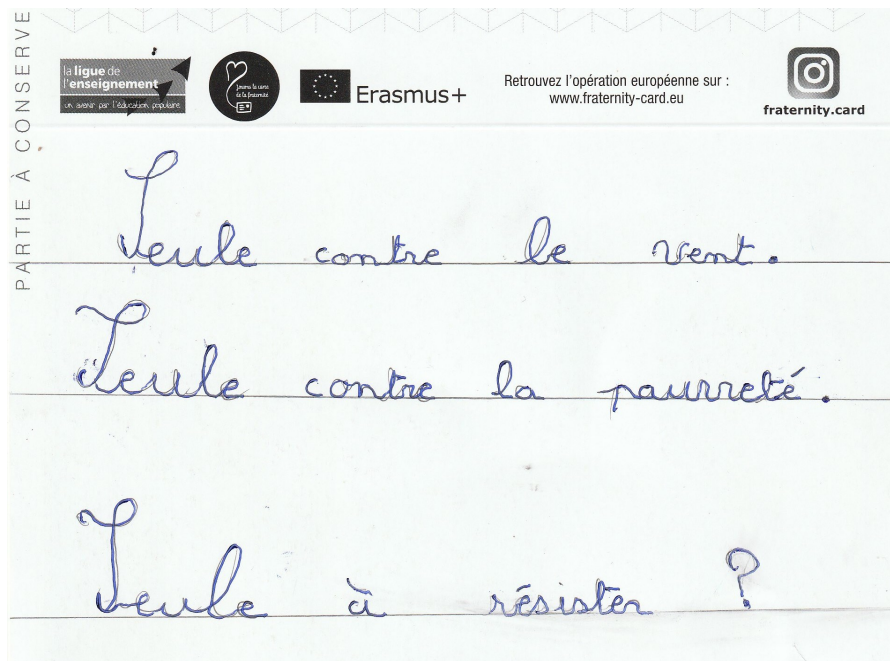 PARTIE À CONSERVE
la ligue de
l'enseignement
un avenir par l'éducation populaire
Jouons la carte
de la fraternité
Erasmus+
Retrouvez l'opération européenne sur :
www.fraternity-card.eu
fraternity.card
Seule contre le vent.
Seule contre la pauvreté.
Seule à résister ?